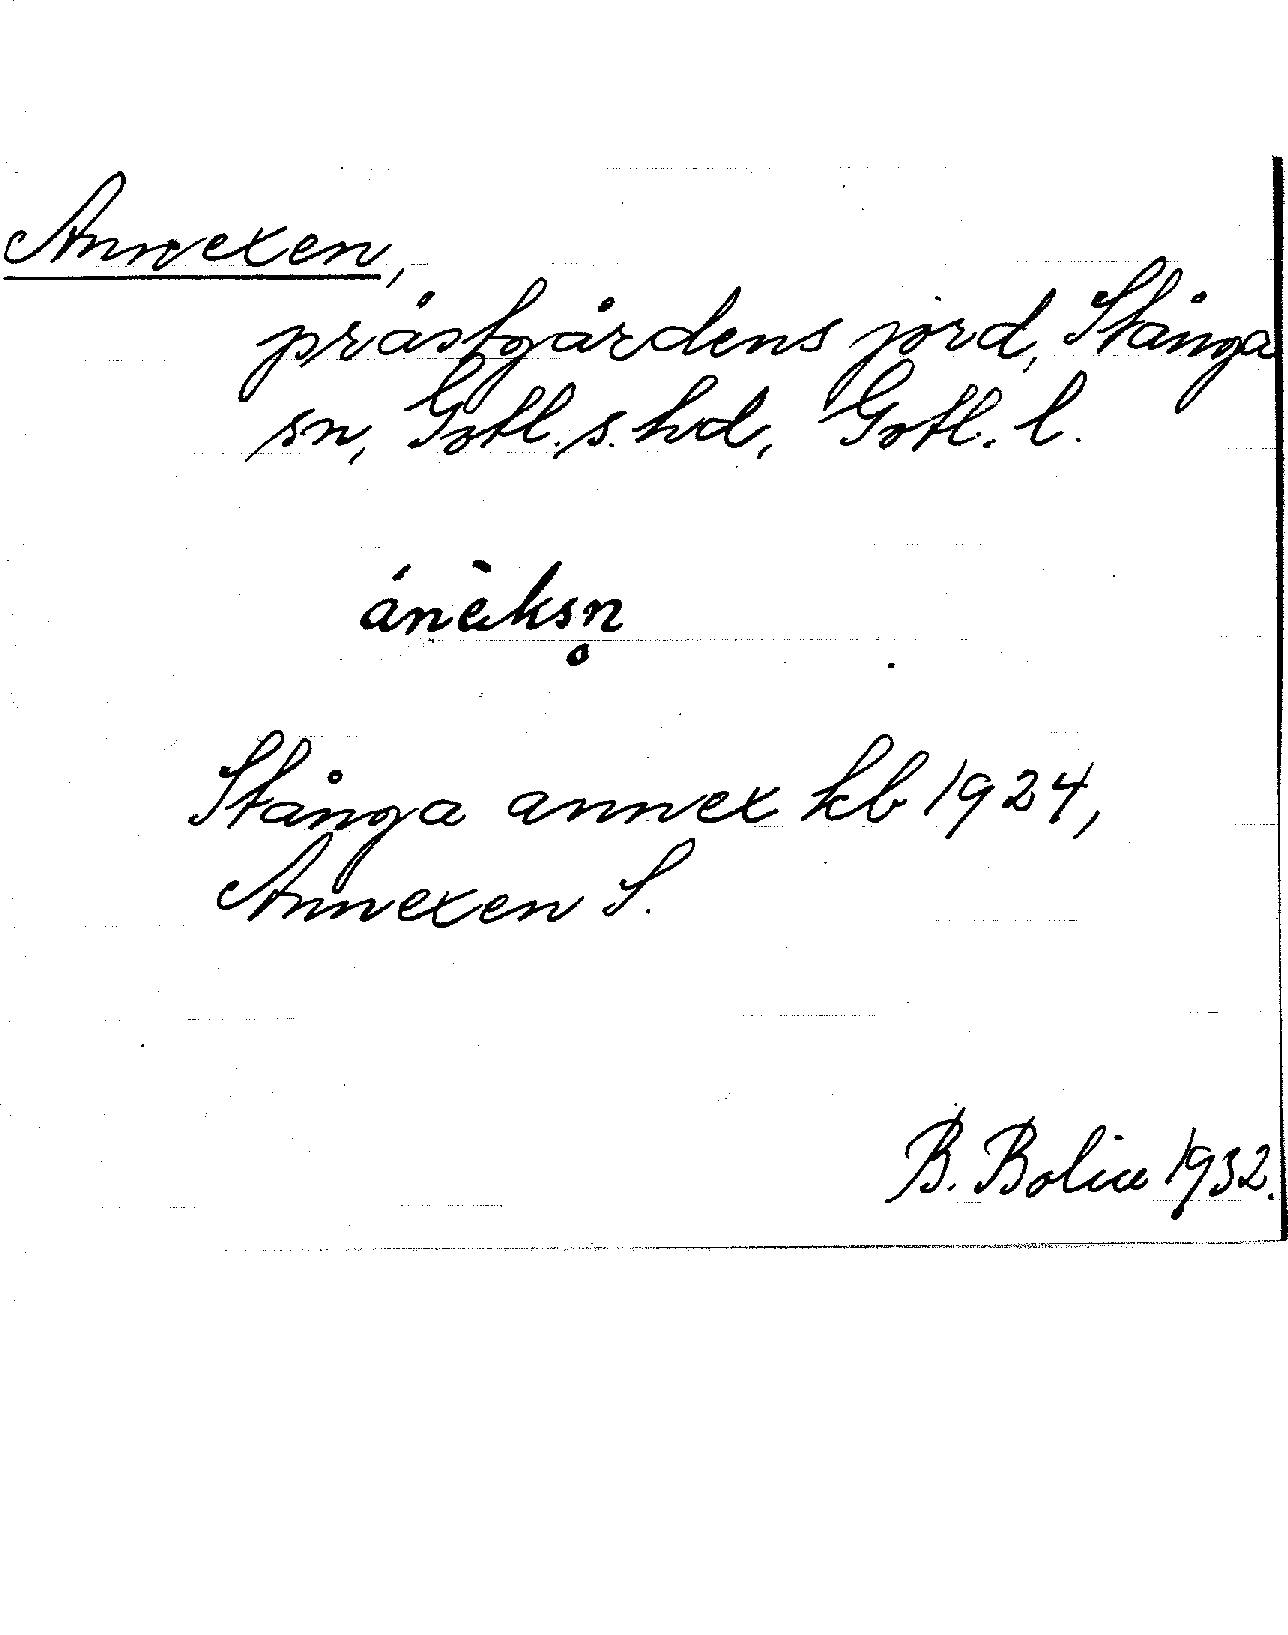 Annexen,
prästgårdens jord, Stånga
sn, Gotl. s. hd, Gotl. l.
ánèksn̥
Stånga annex kb 1924,
Annexen S.
B. Bolin 1932.